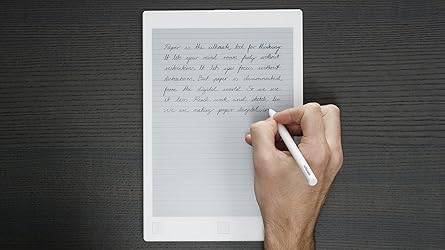 Paper is the ultimate tool for thinking.
It lets your mind roam freely without
restrictions. It lets you focus without
distractions. But paper is disconnected
from the digital world. So we use
it less. Read, work and sketch
we are making paper